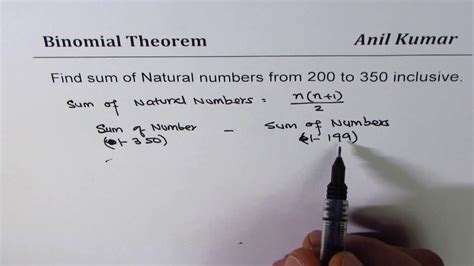 Binomial Theorem Anil Kumar
Find sum of Natural numbers from 200 to 350 inclusive.
Sum of Natural Numbers = n(n+1)/2
Sum of Number - Sum of Numbers
(1-350) (1-199)